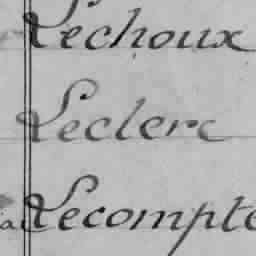 Lechoux
Leclerc
Lecompte